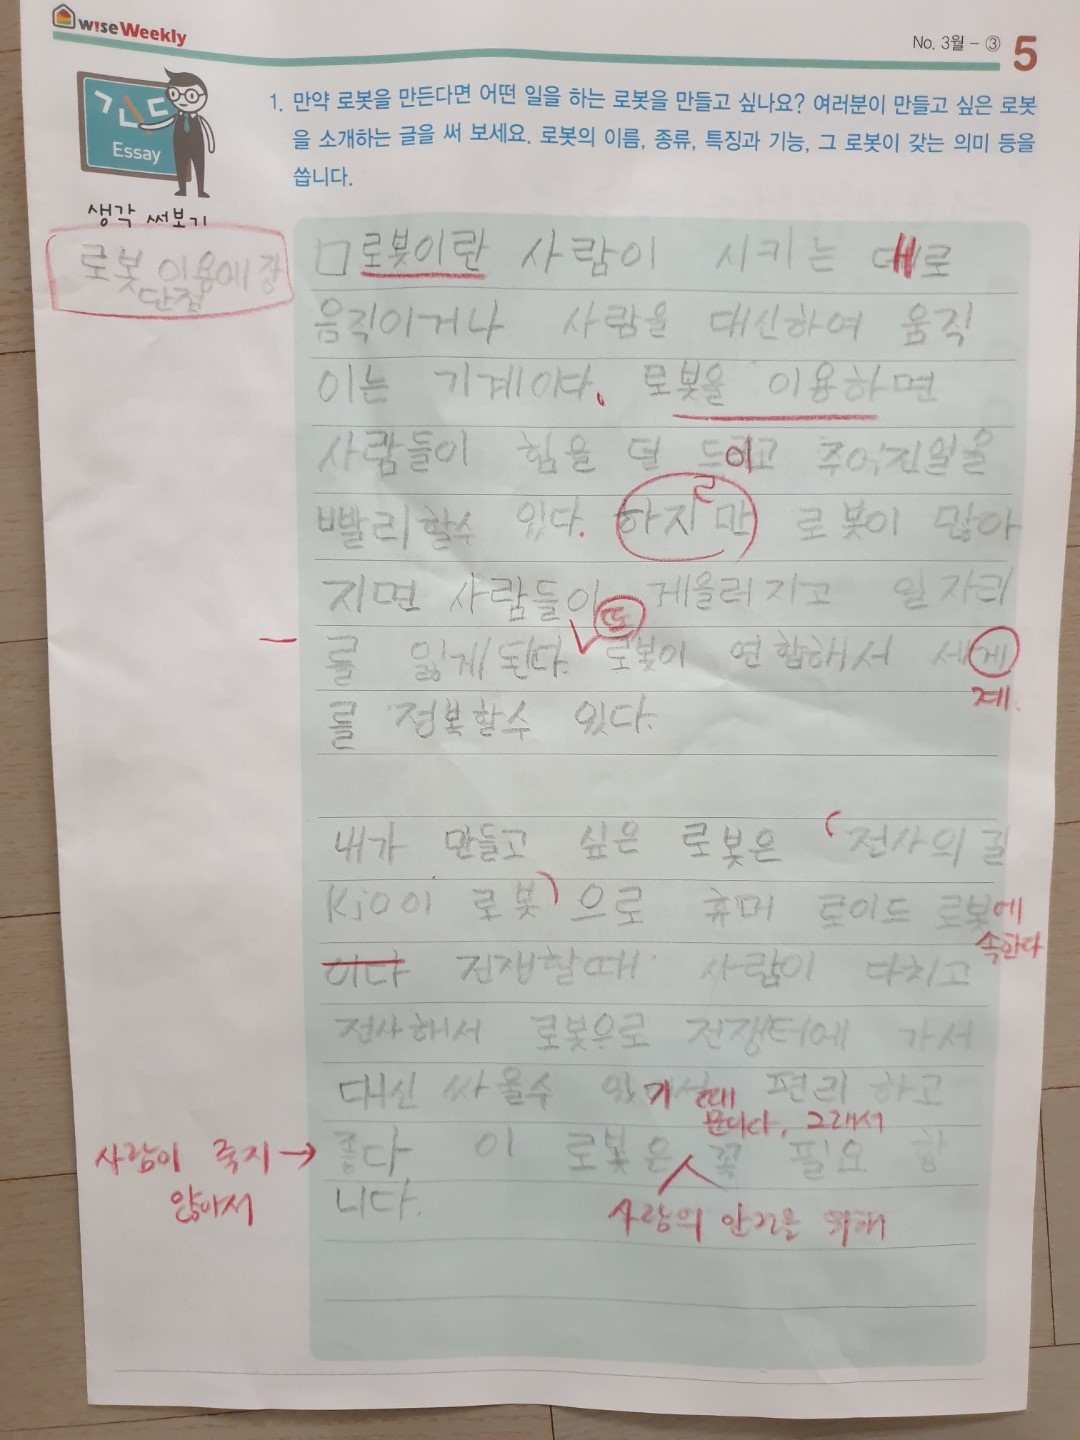 wiseWeekly
No. 3월 - ③ 5
긴다
Essay
생각 써보기
1. 만약 로봇을 만든다면 어떤 일을 하는 로봇을 만들고 싶나요? 여러분이 만들고 싶은 로봇
을 소개하는 글을 써 보세요. 로봇의 이름, 종류, 특징과 기능, 그 로봇이 갖는 의미 등을
씁니다.
로봇 이용에 장
단점
로봇이란 사람이 시키는 대로
움직이거나 사람을 대신하여 움직
이는 기계이다. 로봇을 이용하면
사람들이 힘을 덜 드이고
ㄹ
주어진일을
빨리할수 있다. 하지만 로봇이 많아
지면 사람들이 게을러지고 일자리
또
를 잃게된다. 로봇이 연합해서 세게
계.
를 정복할수 있다.
내가 만들고 싶은 로봇은 (전사의 길
Kj001 로봇)으로 휴머 로이드 로봇에
속한다
이다 전쟁할때 사람이 다치고
전사해서 로봇으로 전쟁터에 가서
대신 싸울수 있기 때 편리하고
문이다. 그래서
사람이 죽지 →
않아서
좋다 이 로봇은 꼭 필요 합
니다.
사람의 안전을 위해